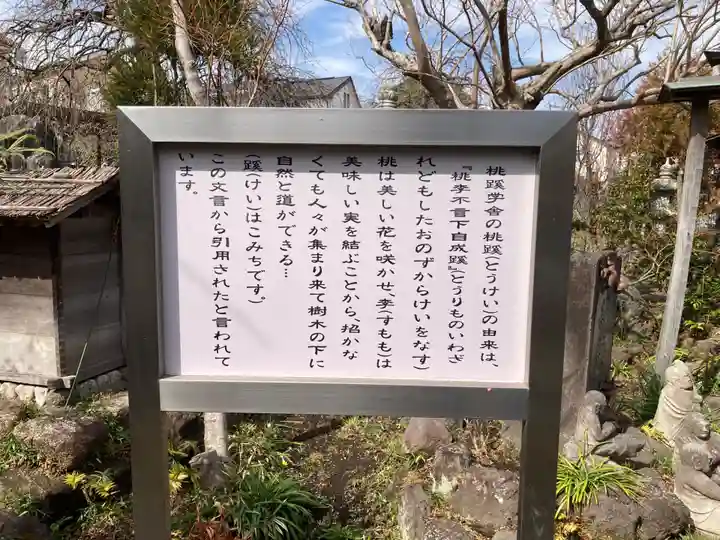 桃蹊学舎の桃蹊(とうけい)の由来は、
『桃李不言下自成蹊』(とうりものいわざ
れどもしたおのずからけいをなす)
桃は美しい花を咲かせ、李(すもも)は
美味しい実を結ぶことから、招かな
くても人々が集まり来て樹木の下に
自然と道ができる…
(蹊(けい)はこみちです。)
この文言から引用されたと言われて
います。